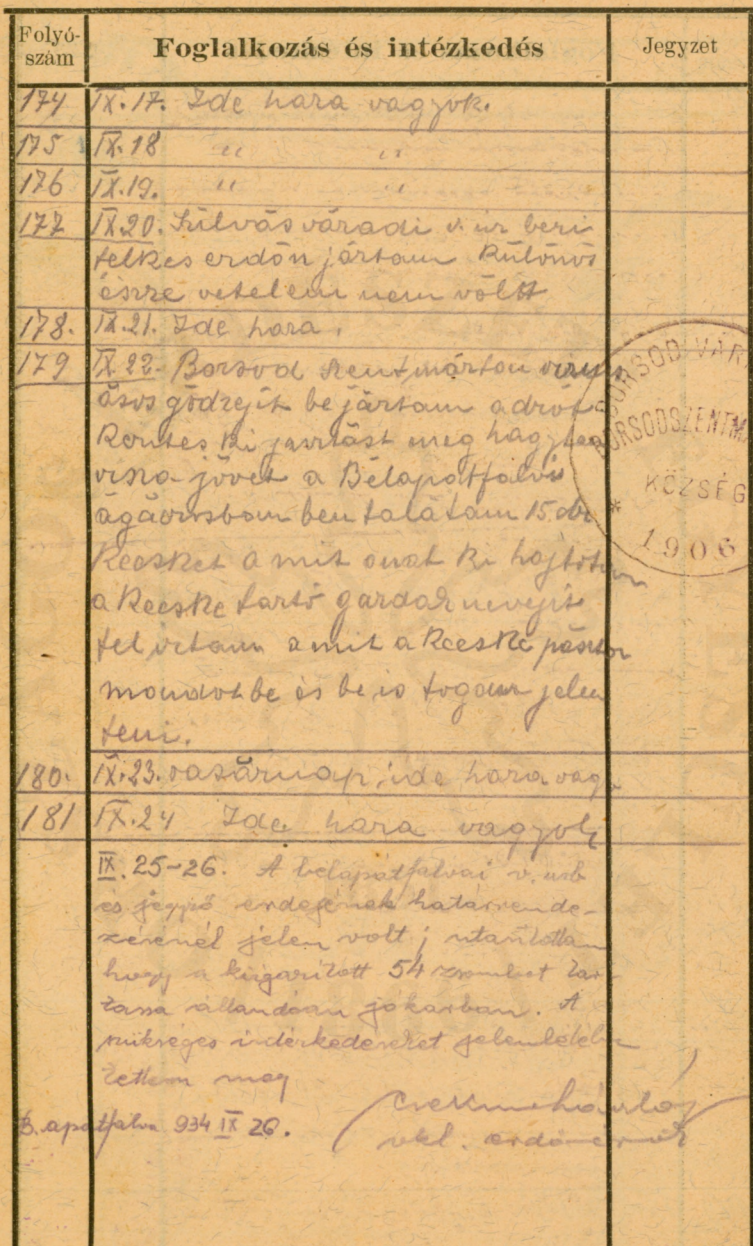 Folyó-
szám
Foglalkozás és intézkedés
Jegyzet
174 IX. 17. Ide haza vagyok.
175 IX. 18 " "
176 IX. 19. " "
177 IX. 20. Szilvás váradi v. ur beri
telkes erdőn jártam Különös
észre vetelem nem völtt
178. IX. 21. Ide haza.
179 IX. 22. Borsod szent márton
ásos gödrejit be jártam a drót
Kerites ki javitást meg hagytam
visza jövet a Bélapátfalvi
ben találtam 15. db
Kecsket a mit ki hajtottam
a Kecske tartó gazdák nevejit
fel irtam a mit a Kecske pásztor
mondot be és be is fogom jelen
teni.
180. IX. 23. vasárnap, ide haza vagy
181 IX. 24 Ide haza vagyok
IX. 25-26. A bélapátfalvai v. urb
és jegyző erdejének határrende-
zésénél jelen volt; utasítottam
hogy a kiigazított 54 zsombot tar-
tassa állandóan jókarban. A
szükséges intézkedéseket jelenlétébe
tettem meg
B. apátfalva 934 IX 26.
vkl. erdőmérnök
BORSOD VÁR
BORSODSZENTM
KÖZSÉG
* 1906